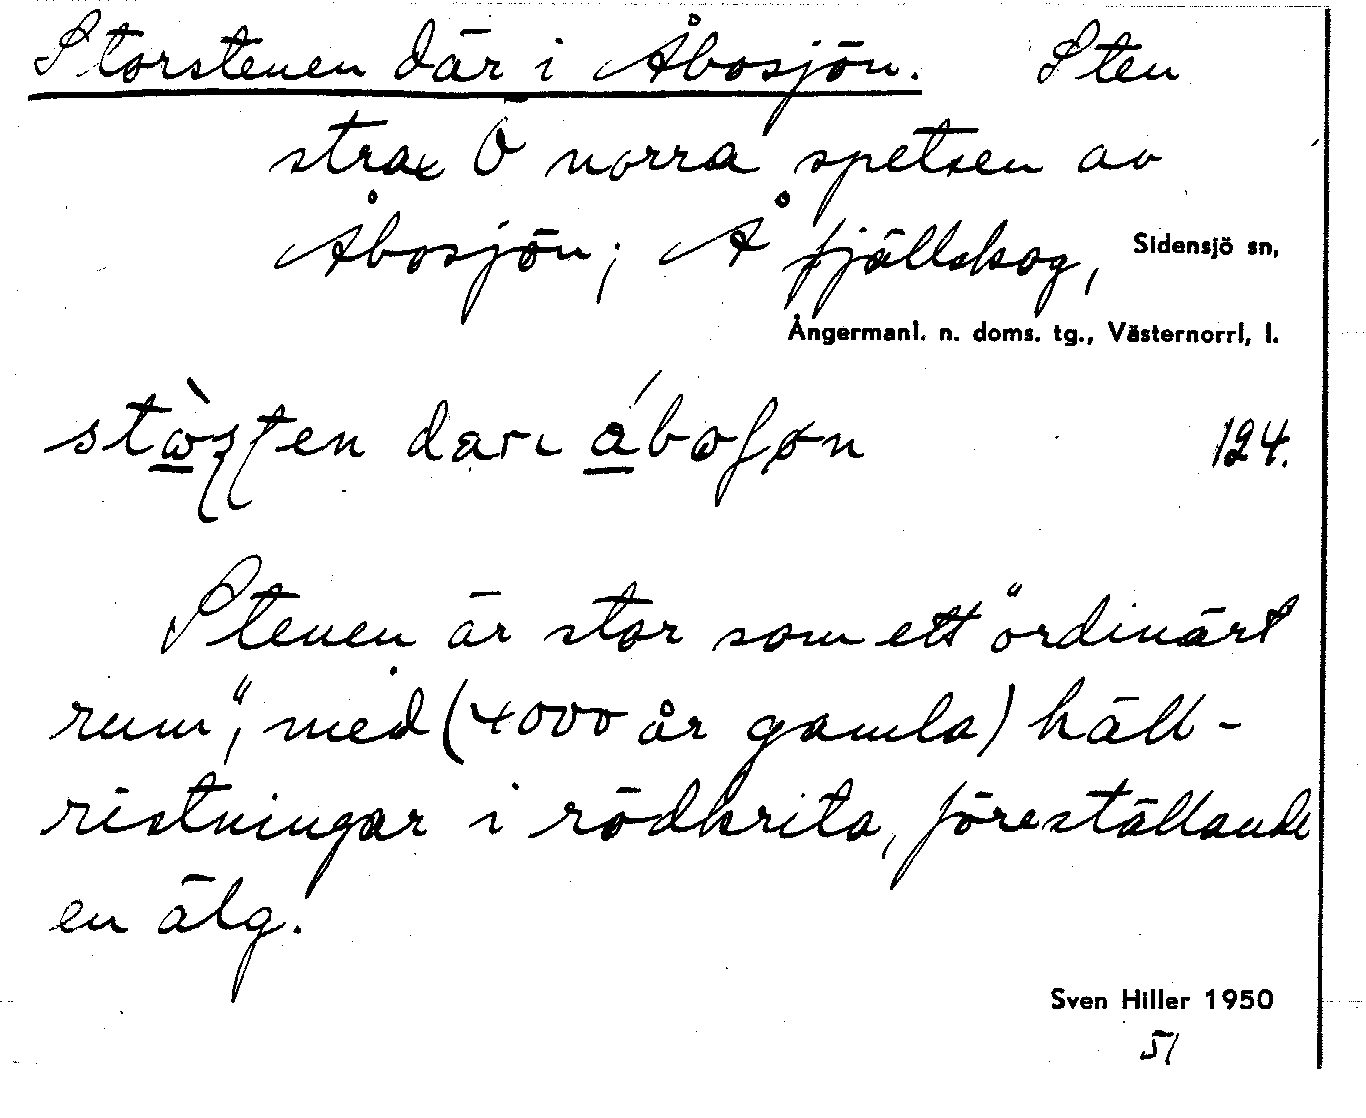 Storstenen där i Åbosjön. Sten
strax Ö norra spetsen av
Åbosjön; Å fjällskog, Sidensjö sn,
Ångermanl. n. doms. tg., Västernorrl, l.
dari 124.
Stenen är stor som ett "ordinärt
rum", med (4000 år gamla) häll-
ristningar i rödkrita, föreställande
en älg.
Sven Hiller 1950
51